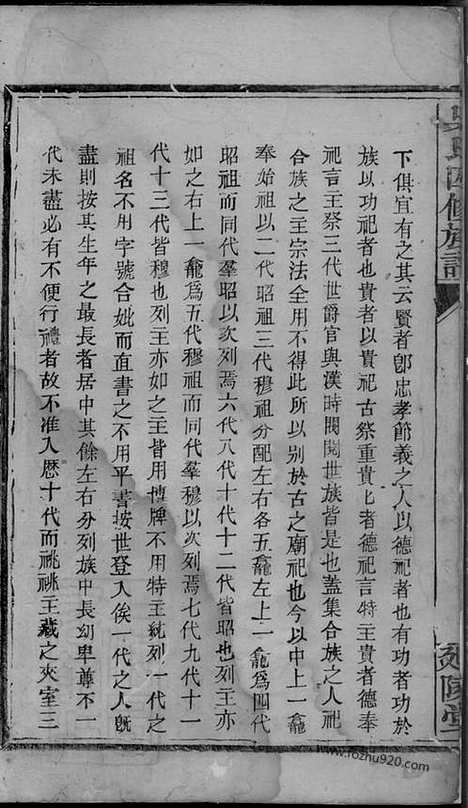 下俱宜有之其云賢者卽忠孝節義之人以德祀者也有功者功於
族以功祀者也貴者以貴祀古祭重貴匕者德祀言特主貴者德奉
祀言主祭三代世爵官與漢時閥閱世族皆是也蓋集合族之人祀
合族之主宗法全用不得此所以别於古之廟祀也今以中上一龕
奉始祖以二代昭祖三代穆祖分配左右各五龕左上一龕爲四代
昭祖而同代羣昭以次列焉六代八代十代十二代皆昭也列主亦
如之右上一龕爲五代穆祖而同代羣穆以次列焉七代九代十一
代十三代皆穆也列主亦如之主皆用博牌不用特主純列一代之
祖名不用字號合妣而直書之不用平書按世登入俟一代之人旣
盡則按其生年之最長者居中其餘左右分列族中長幼卑尊不一
代未盡必有不便行禮者故不准入歷十代而祧祧主藏之夾室三
四修族譜
陳堂
www.fozhu920.com